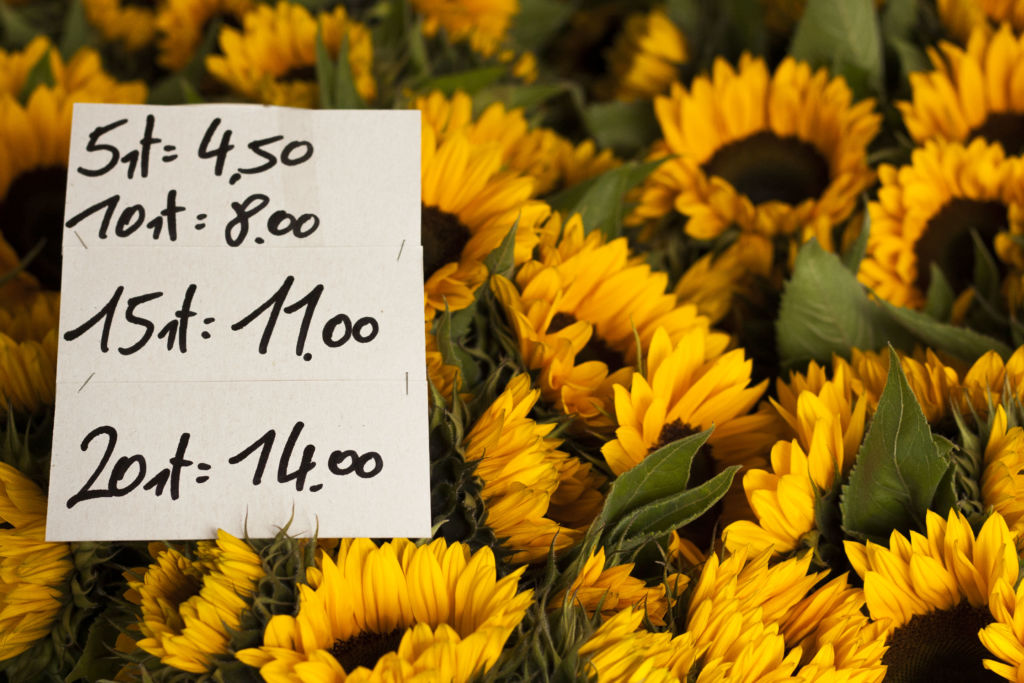 5st= 4,50
10st= 8.00
15st= 11.00
20st= 14.00